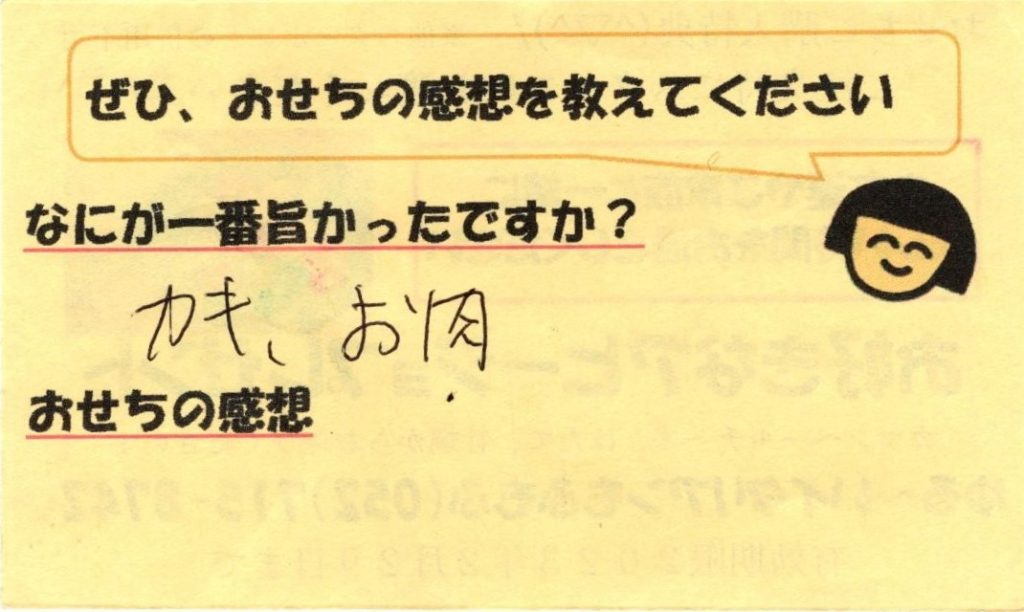 ぜひ、おせちの感想を教えてください
なにが一番旨かったですか？
カキ、お肉
おせちの感想